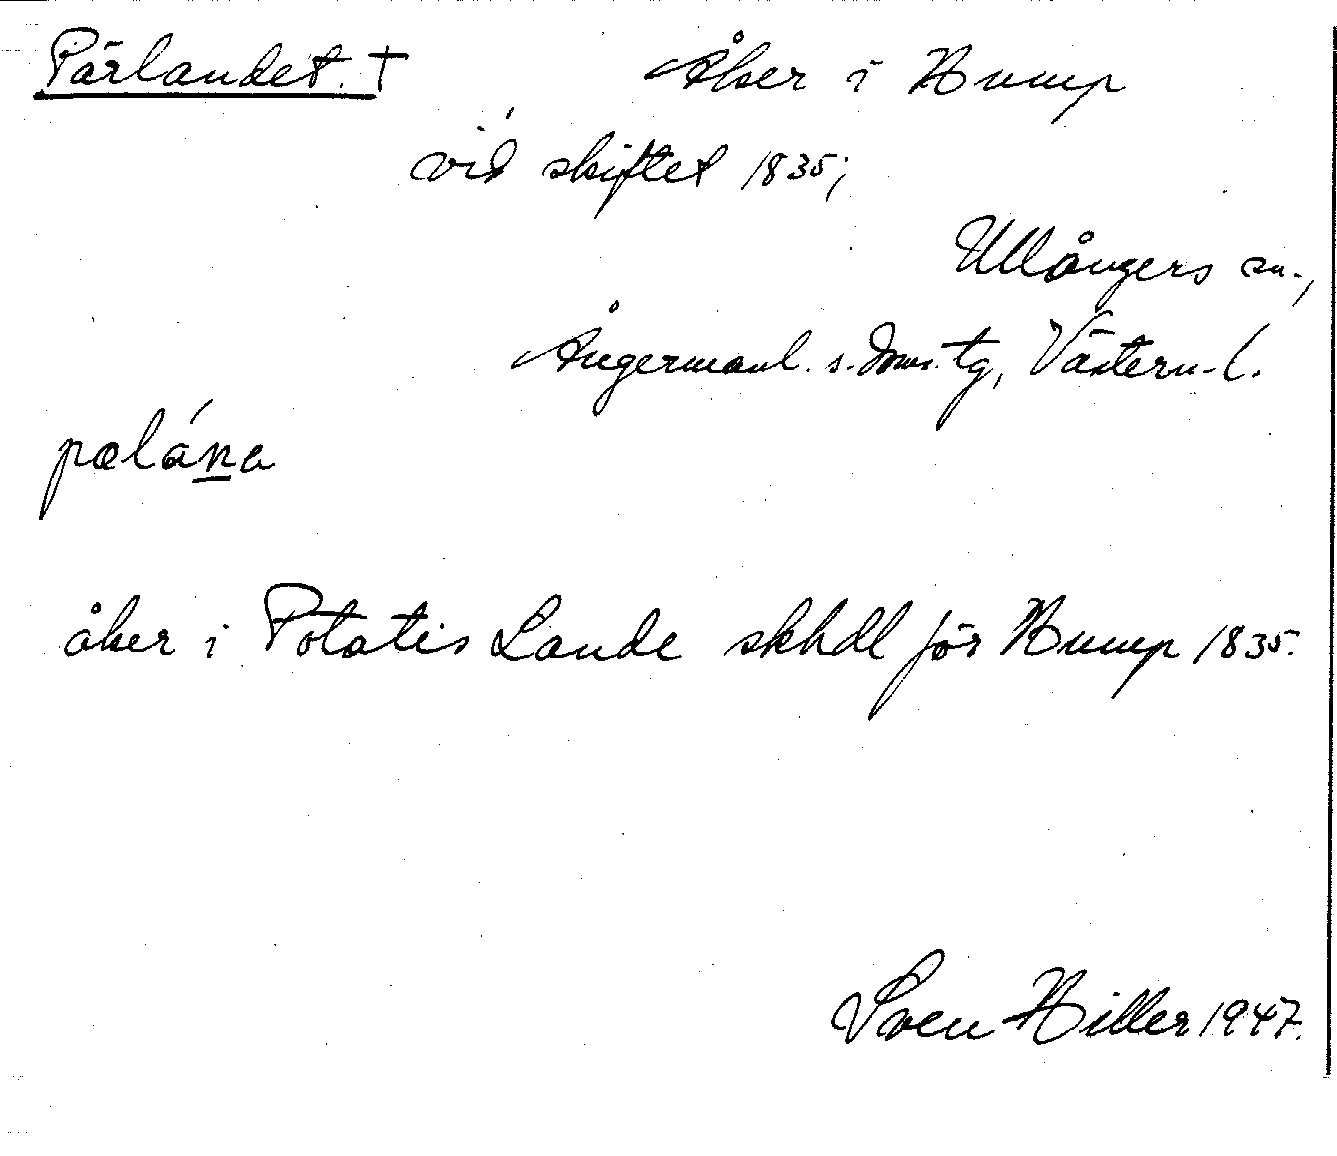 Pärlandet. † Åker i Hump
vid skiftet 1835;
Ullångers sn.,
Ångermanl. s. domstg, Västern. l.
pæláṉa
åker i Potatis Lande skhdl för Hump 1835.
Sven Hiller 1947.